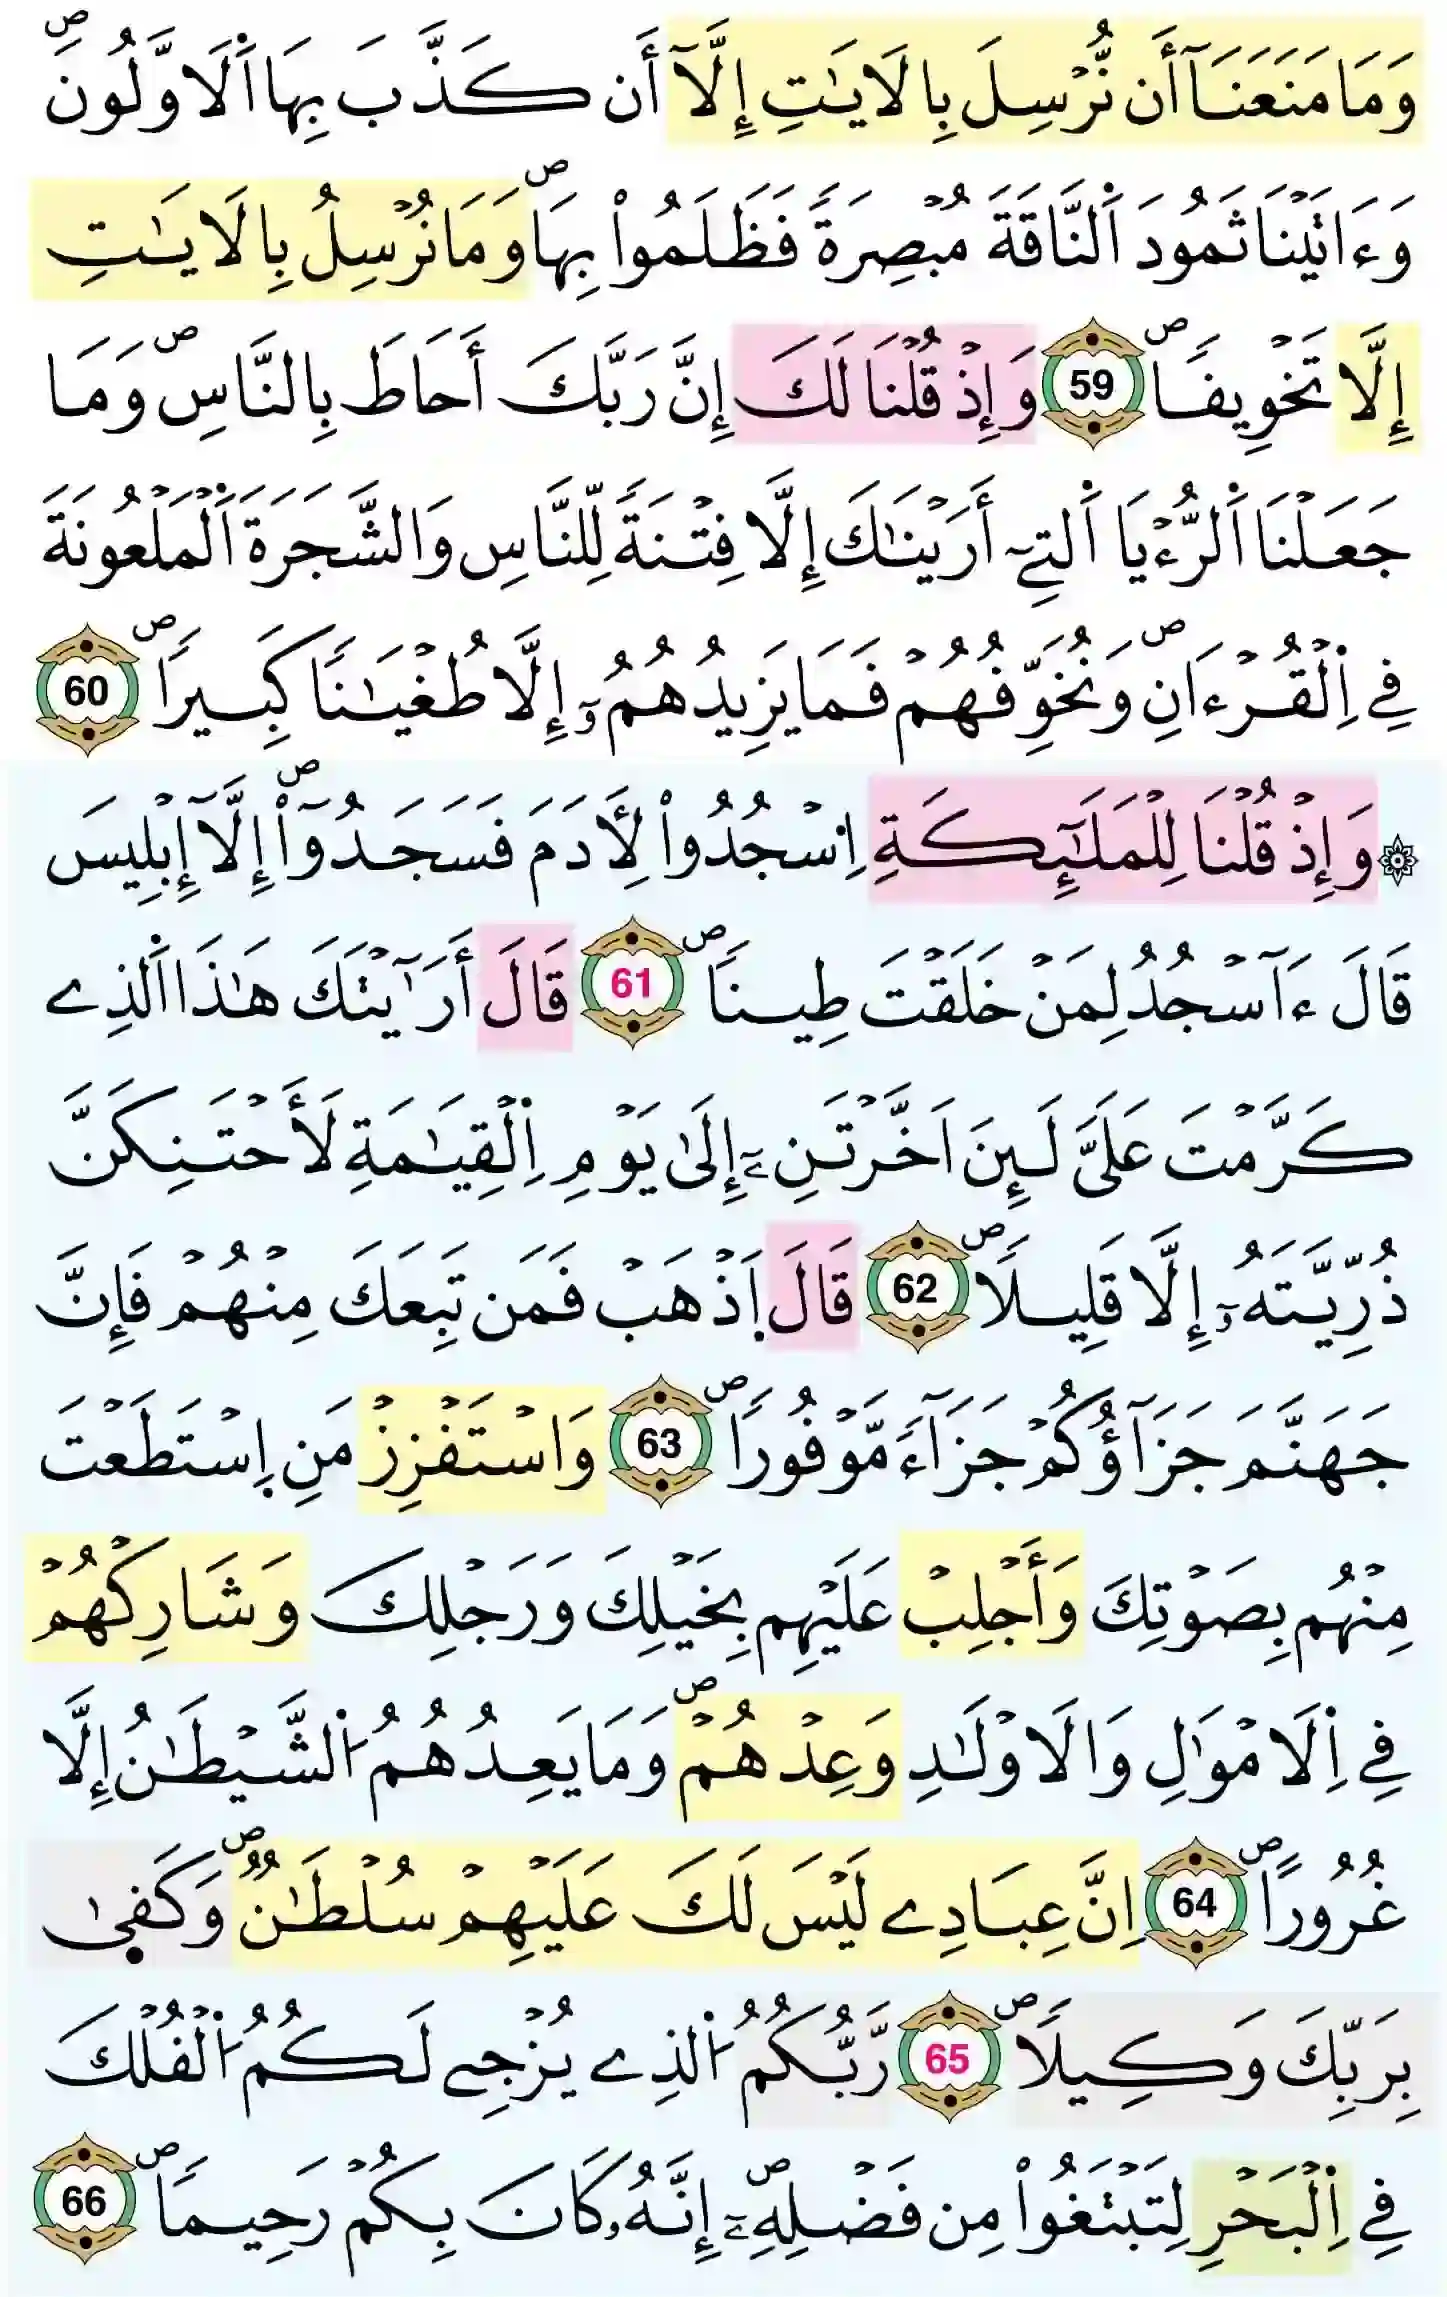 وَمَا مَنَعَنَآ أَن نُّرْسِلَ بِالَايَٰتِ إِلَّآ أَن كَذَّبَ بِهَا اَ۬لَاوَّلُونَۖ
وَءَاتَيْنَا ثَمُودَ اَ۬لنَّاقَةَ مُبْصِرَةٗ فَظَلَمُواْ بِهَاۖ وَمَا نُرْسِلُ بِالَايَٰتِ
إِلَّا تَخْوِيفاٗۖ 59 وَإِذْ قُلْنَا لَكَ إِنَّ رَبَّكَ أَحَاطَ بِالنَّاسِۖ وَمَا
جَعَلْنَا اَ۬لرُّءْيَا اَ۬لتِےٓ أَرَيْنَٰكَ إِلَّا فِتْنَةٗ لِّلنَّاسِ وَالشَّجَرَةَ اَ۬لْمَلْعُونَةَ
فِے اِ۬لْقُرْءَانِۖ وَنُخَوِّفُهُمْ فَمَا يَزِيدُهُمُۥٓ إِلَّا طُغْيَٰناٗ كَبِيراٗۖ 60
۞ وَإِذْ قُلْنَا لِلْمَلَٰٓئِكَةِ اِ۟سْجُدُواْ لِأٓدَمَ فَسَجَدُوٓاْۖ إِلَّآ إِبْلِيسَ
قَالَ ءَآسْجُدُ لِمَنْ خَلَقْتَ طِيناٗۖ 61 قَالَ أَرَٰٓيْتَكَ هَٰذَا اَ۬لذِے
كَرَّمْتَ عَلَيَّ لَئِنَ اَخَّرْتَنِۦٓ إِلَىٰ يَوْمِ اِ۬لْقِيَٰمَةِ لَأَحْتَنِكَنَّ
ذُرِّيَّتَهُۥٓ إِلَّا قَلِيلاٗۖ 62 قَالَ اَ۪ذْهَبْ فَمَن تَبِعَكَ مِنْهُمْ فَإِنَّ
جَهَنَّمَ جَزَآؤُكُمْ جَزَآءٗ مَّوْفُوراٗۖ 63 وَاسْتَفْزِزْ مَنِ اِ۪سْتَطَعْتَ
مِنْهُم بِصَوْتِكَ وَأَجْلِبْ عَلَيْهِم بِخَيْلِكَ وَرَجْلِكَ وَشَارِكْهُمْ
فِے اِ۬لَامْوَٰلِ وَالَاوْلَٰدِ وَعِدْهُمْۖ وَمَا يَعِدُهُمُ اُ۬لشَّيْطَٰنُ إِلَّا
غُرُوراًۖ 64 اِنَّ عِبَادِے لَيْسَ لَكَ عَلَيْهِمْ سُلْطَٰنٞۖ وَكَفٜىٰ
بِرَبِّكَ وَكِيلاٗۖ 65 رَّبُّكُمُ اُ۬لذِے يُزْجِے لَكُمُ اُ۬لْفُلْكَ
فِے اِ۬لْبَحْرِ لِتَبْتَغُواْ مِن فَضْلِهِۦٓۖ إِنَّهُۥ كَانَ بِكُمْ رَحِيماٗۖ 66